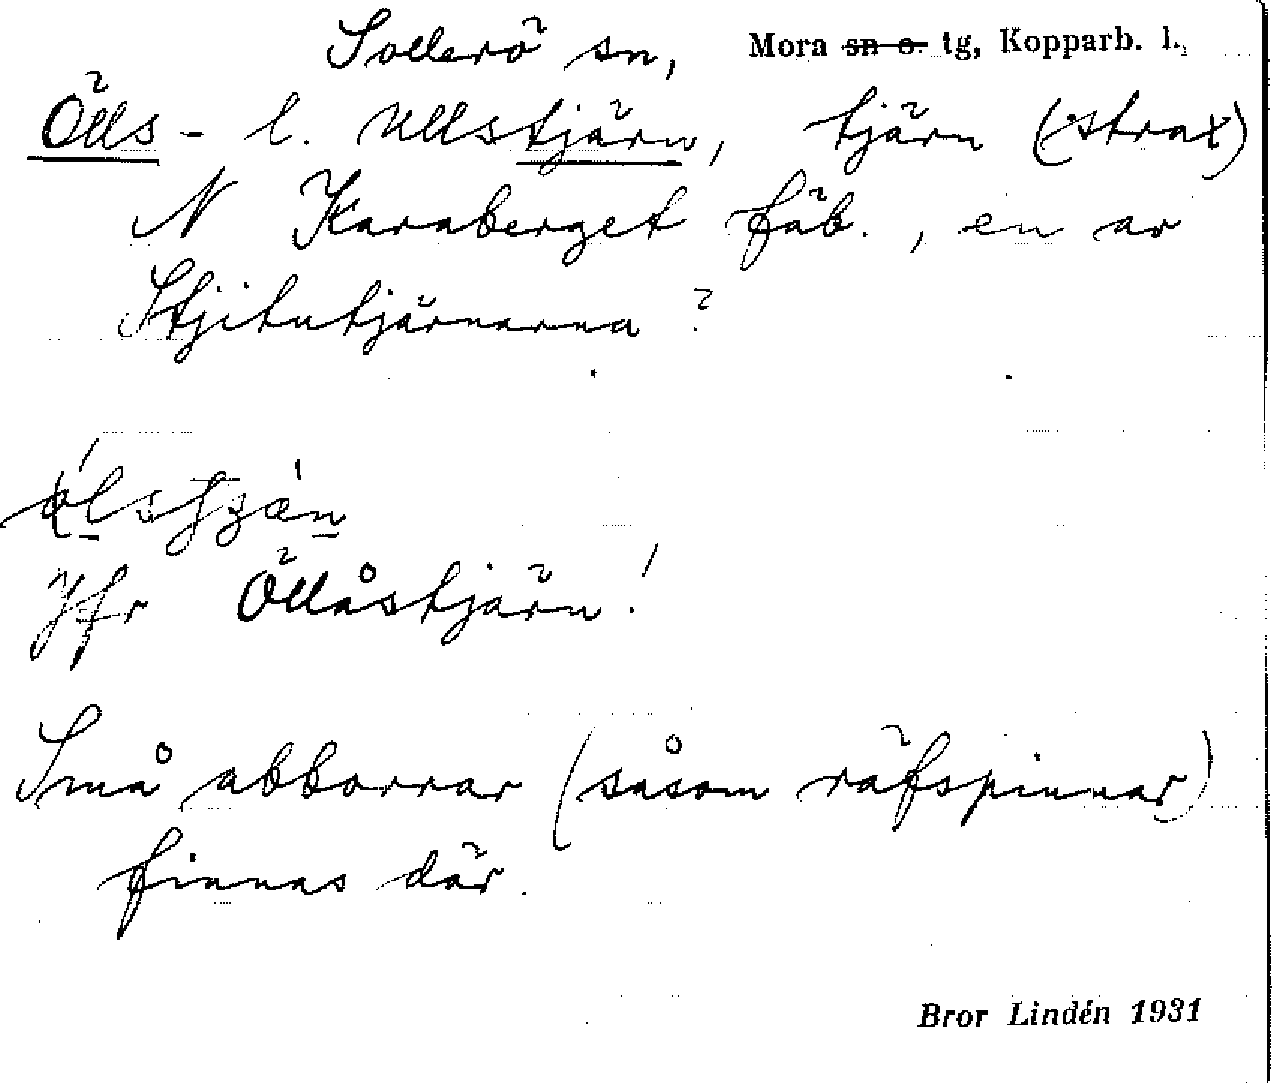 Sollerö sn, Mora sn o. tg, Kopparb. l.
Ölls- l. Ullstjärn, tjärn (strax)
N Karaberget fäb., en av
Stjitutjärnarna?
Jfr Öllåstjärn!
Små abborrar (såsom räfspinnar)
finnas där.
Bror Lindén 1931